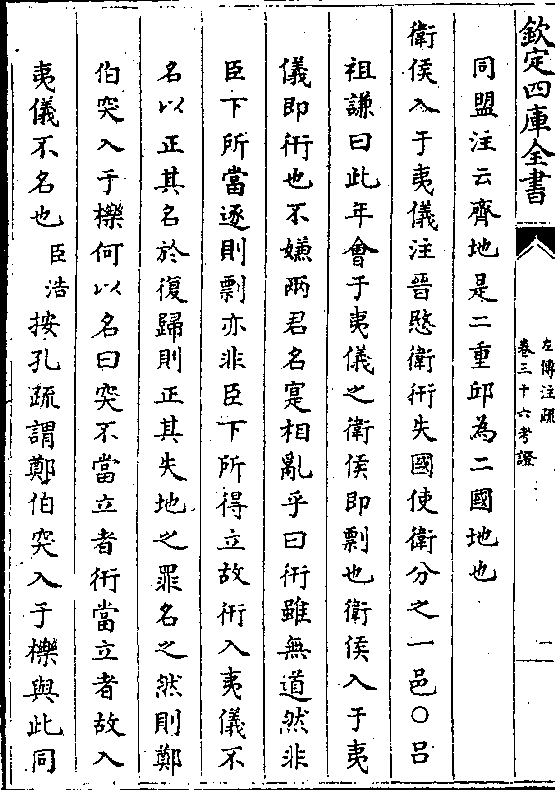 欽定四庫全書
左傳注疏
卷三十六考證
二
同盟注云齊地是二重邱為二國地也
衛侯入于夷儀注晉愍衛衎失國使衛分之一邑○呂
祖謙曰此年會于夷儀之衛侯即剽也衛侯入于夷
儀即衎也不嫌兩君名寔相亂乎曰衎雖無道然非
臣下所當逐則剽亦非臣下所得立故衎入夷儀不
名以正其名於復歸則正其失地之罪名之然則鄭
伯突入于櫟何以名曰突不當立者衎當立者故入
夷儀不名也臣浩按孔疏謂鄭伯突入于櫟與此同